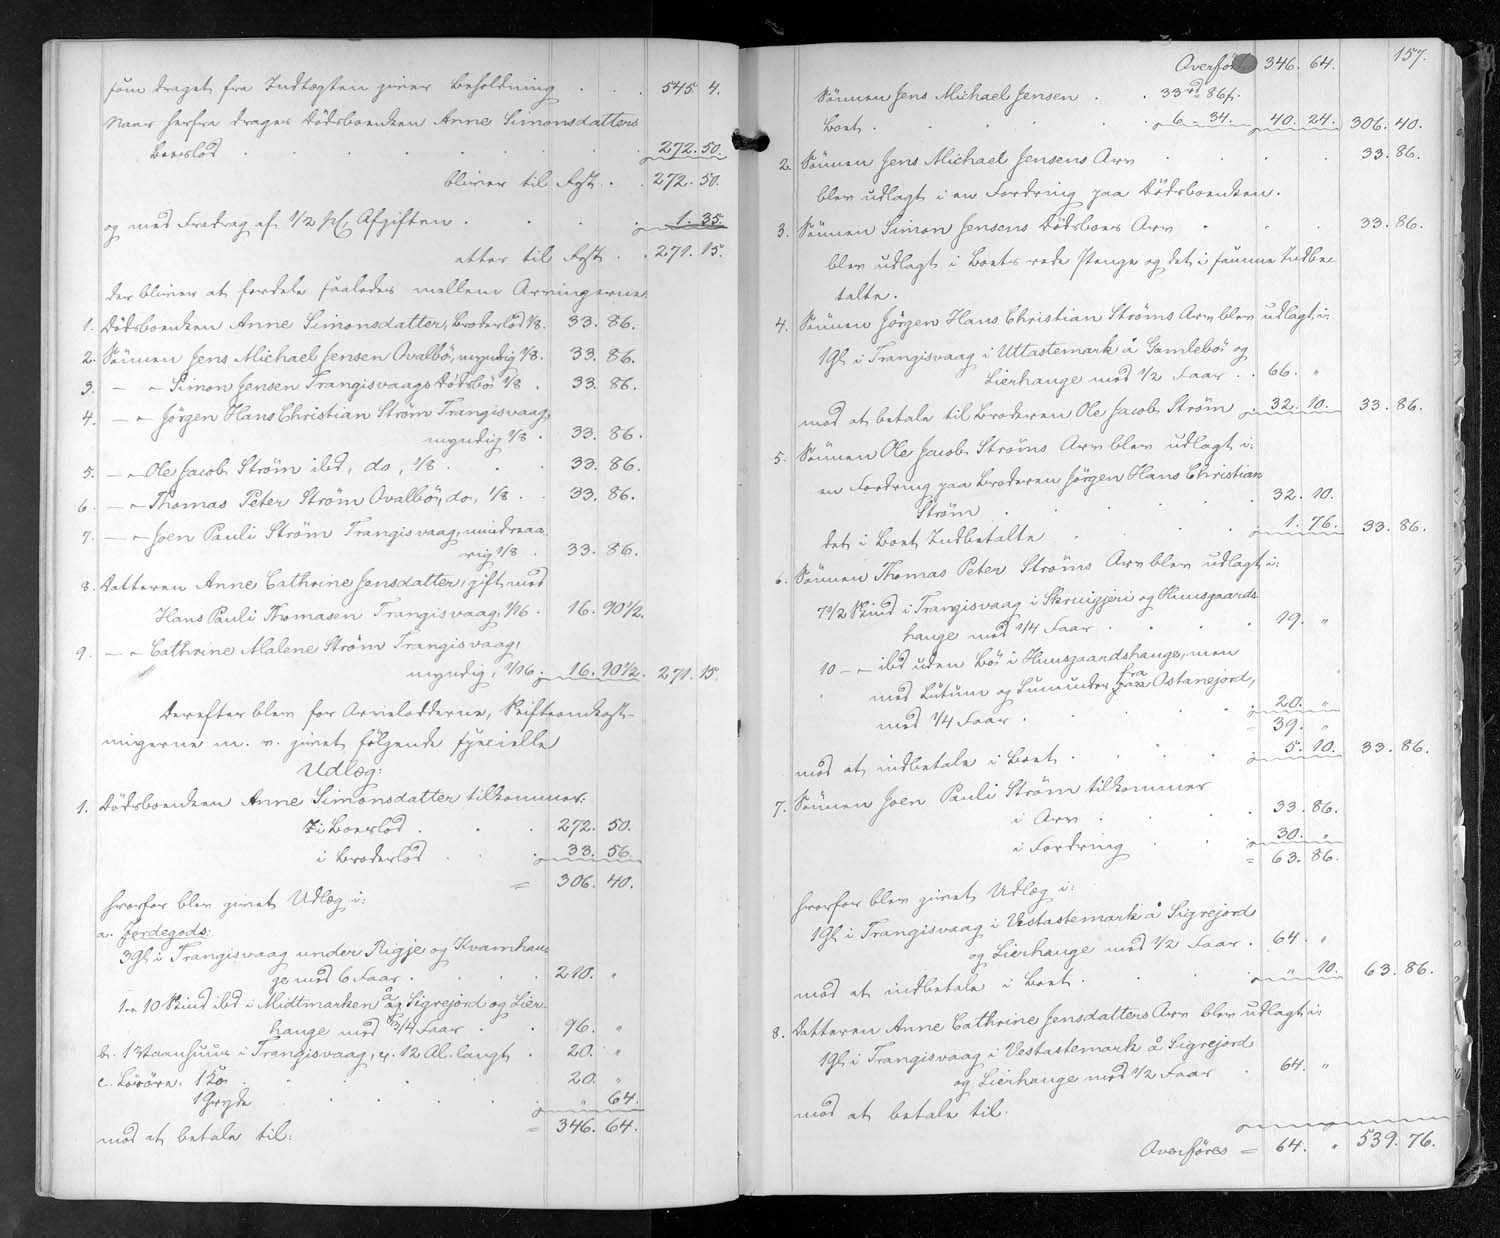 som draget fra Indtægten giver Beholdning . . . 545. 4.
Naar herfra drages Dødsboenken Anne Simonsdatters
Boeslod . . . . . . . 272. 50.
bliver til Rest . . 272. 50.
og med Fradrag af 1/2 pCt. Afgiften . . . . 1. 35.
atter til Rest . . 271. 15.
der bliver at fordele saaledes mellem Arvingerne:
1. Dødsboenken Anne Simonsdatter, Broderlod 1/8. 33. 86.
2. Sönnen Jens Michael Jensen Ovalbö, myndig 1/8. 33. 86.
3. — " Simon Jensen Trangisvaags Dødsbö 1/8 . 33. 86.
4. — " Jörgen Hans Christian Ström Trangisvaag,
myndig 1/8 . 33. 86.
5. — " Ole Jacob Ström ibd, do, 1/8 . . . 33. 86.
6. — " Thomas Peter Ström Ovalbö, do, 1/8 . . 33. 86.
7. — " Joen Pauli Ström Trangisvaag, mindreaa
rig 1/8 . 33. 86.
8. Datteren Anne Cathrine Jensdatter, gift med
Hans Pauli Thomasen Trangisvaag, 1/16 . 16. 90 1/2.
9. — " Cathrine Malene Ström Trangisvaag,
myndig, 1/16 . 16. 90 1/2. 271. 15.
Derefter blev for Arvelodderne, Skifteomkost-
ningerne m. v. givet følgende specielle
Udlæg:
1. Dödsboenken Anne Simonsdatter tilkommer:
i Boeslod . . . 272. 50.
i Broderlod . . . 33. 56.
= 306. 40.
hvorfor blev givet Udlæg i:
a. Jordegods:
3 Gl i Trangisvaag under Rigje og Kvamhau-
ge med 6 Faar . . . . 210. "
1 " 10 Skind ibd i Midtmarken å Sigrejord og Lier-
hauge med 3/4 Faar . . 96. "
b. 1 Staanhuus i Trangisvaag, c. 12 Al. langt . 20. "
c. Lösöre. 1 Ko . . . . . 20. "
1 Gryde . . . . . " 64.
mod at betale til: = 346. 64.
157.
Overført 346. 64.
Sönnen Jens Michael Jensen . . 33 rd 86 s.
Boet . . . . . . 6 - 34. 40. 24. 306. 40.
2. Sönnen Jens Michael Jensens Arv . . . . 33. 86.
blev udlagt i en Fordring paa Dødsboenken.
3. Sönnen Simon Jensens Dødsboes Arv . . . 33. 86.
blev udlagt i Boets rede Penge og det i samme Indbe-
talte.
4. Sönnen Jörgen Hans Christian Ströms Arv blev udlagt i:
1 Gl i Trangisvaag i Uttastemark å Gamlebö og
Lierhauge med 1/2 Faar . . 66. "
mod at betale til Broderen Ole Jacob Ström . 32. 10. 33. 86.
5. Sönnen Ole Jacob Ströms Arv blev udlagt i:
en Fordring paa Broderen Jörgen Hans Christian
Ström . . . . . . 32. 10.
det i Boet Indbetalte . . . . 1. 76. 33. 86.
6. Sönnen Thomas Peter Ströms Arv blev udlagt i:
7 1/2 Skind i Trangisvaag i Skruigjeri og Huusgaards
hauge med 1/4 Faar . . . . 19. "
10 — " ibd uden Bö i Huusgaardshauge, men
med Lutum og Lunnunder fra Ostanejord,
med 1/4 Faar . . . . . 20. "
= 39. "
mod at indbetale i Boet . . . . 5. 10. 33. 86.
7. Sönnen Joen Pauli Ström tilkommer
i Arv . . . . 33. 86.
i Fordring . . . 30. "
= 63. 86.
hvorfor blev givet Udlæg i:
1 Gl i Trangisvaag i Vestastemark å Sigrejord
og Lierhauge med 1/2 Faar . 64. "
mod at indbetale i Boet . . . . " 10. 63. 86.
8. Datteren Anne Cathrine Jensdatters Arv blev udlagt i:
1 Gl i Trangisvaag i Vestastemark å Sigrejord
og Lierhauge med 1/2 Faar . 64. "
mod at betale til.
Overføres = 64. " 539. 76.